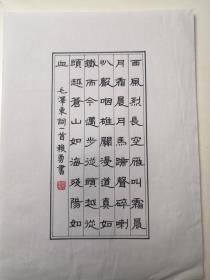 西風烈長空雁叫霜晨
月霜晨月馬蹄聲碎喇
叭聲咽雄關漫道真如
鐵而今邁步從頭越從
頭越蒼山如海殘陽如
血
毛澤東詞一首勇書